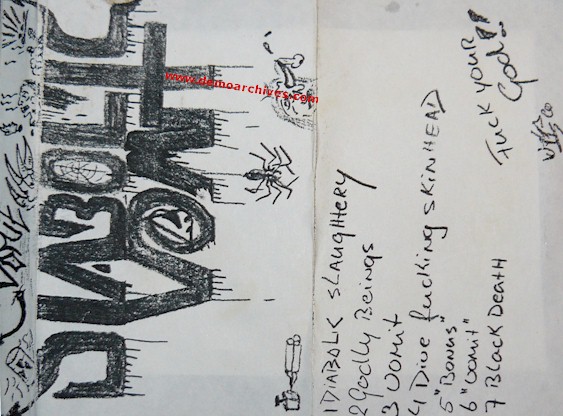 DIABOLIC
VOMIT
www.demoarchives.com
1 DIABOLIC SLAUGHTERY
2 Godly Beings
3 VOMIT
4 Dive fucking SKINHEAD
5 "Bonus"
6 "Vomit"
7 Black Death
Fuck your
God!!